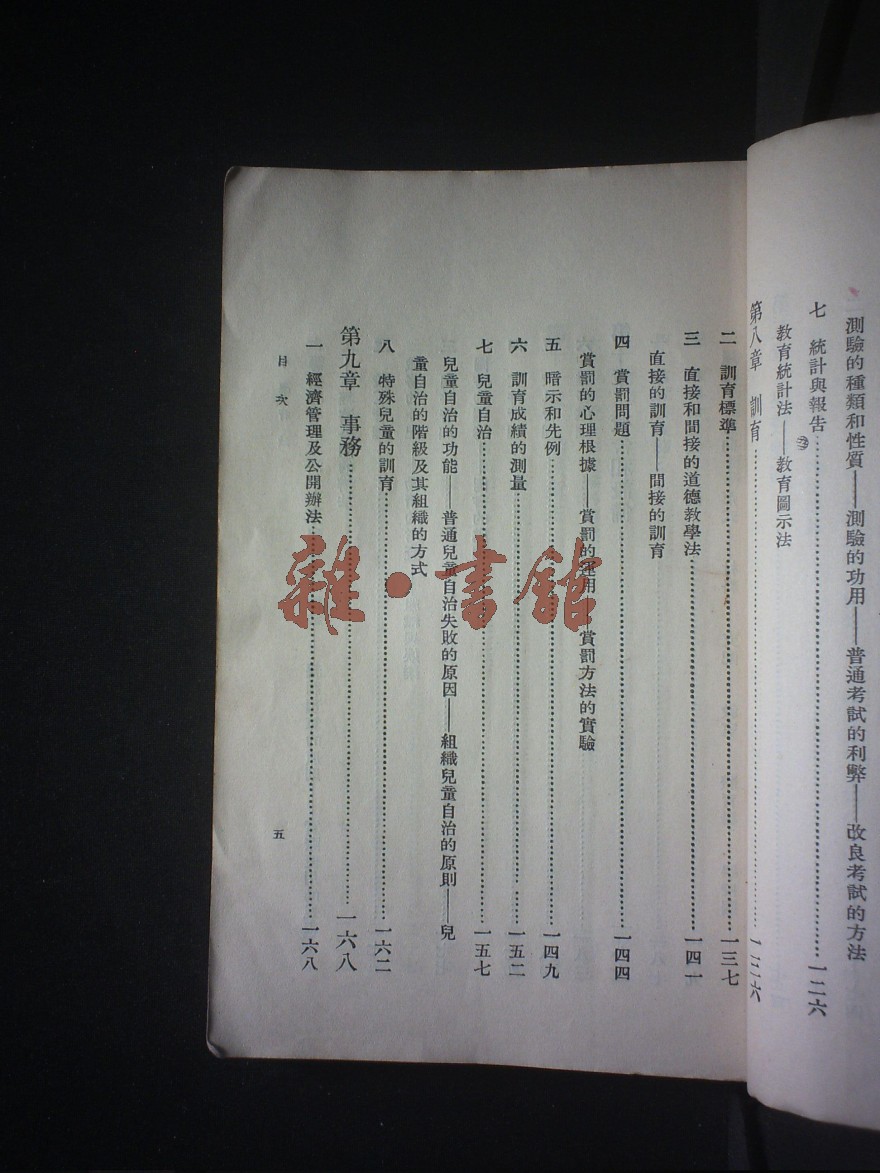 測驗的種類和性質——測驗的功用——普通考試的利弊——改良考試的方法
七　統計與報告…………一二六
教育統計法——教育圖示法
第八章　訓育…………一三六
二　訓育標準…………一三七
三　直接和間接的道德教學法…………一四一
直接的訓育——間接的訓育
四　賞罰問題…………一四四
賞罰的心理根據——賞罰的運用——賞罰方法的實驗
五　暗示和先例…………一四九
六　訓育成績的測量…………一五二
七　兒童自治…………一五七
兒童自治的功能——普通兒童自治失敗的原因——組織兒童自治的原則——兒
童自治的階級及其組織的方式
八　特殊兒童的訓育…………一六二
第九章　事務…………一六八
一　經濟管理及公開辦法…………一六八
目次
五
雜·書館